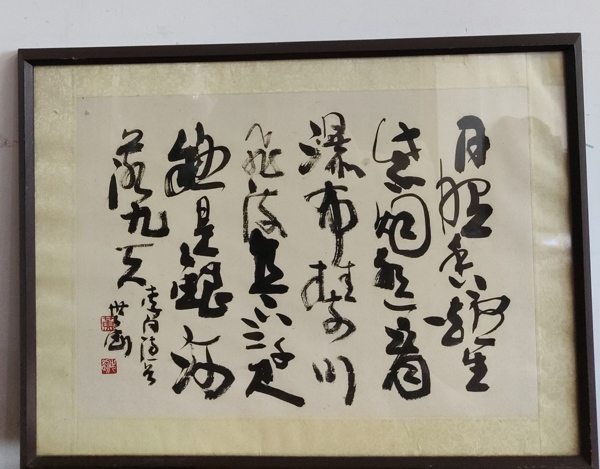 日照香爐生
紫烟遥看
瀑布挂前川
飛流直下三千尺
疑是銀河
落九天
李白詩